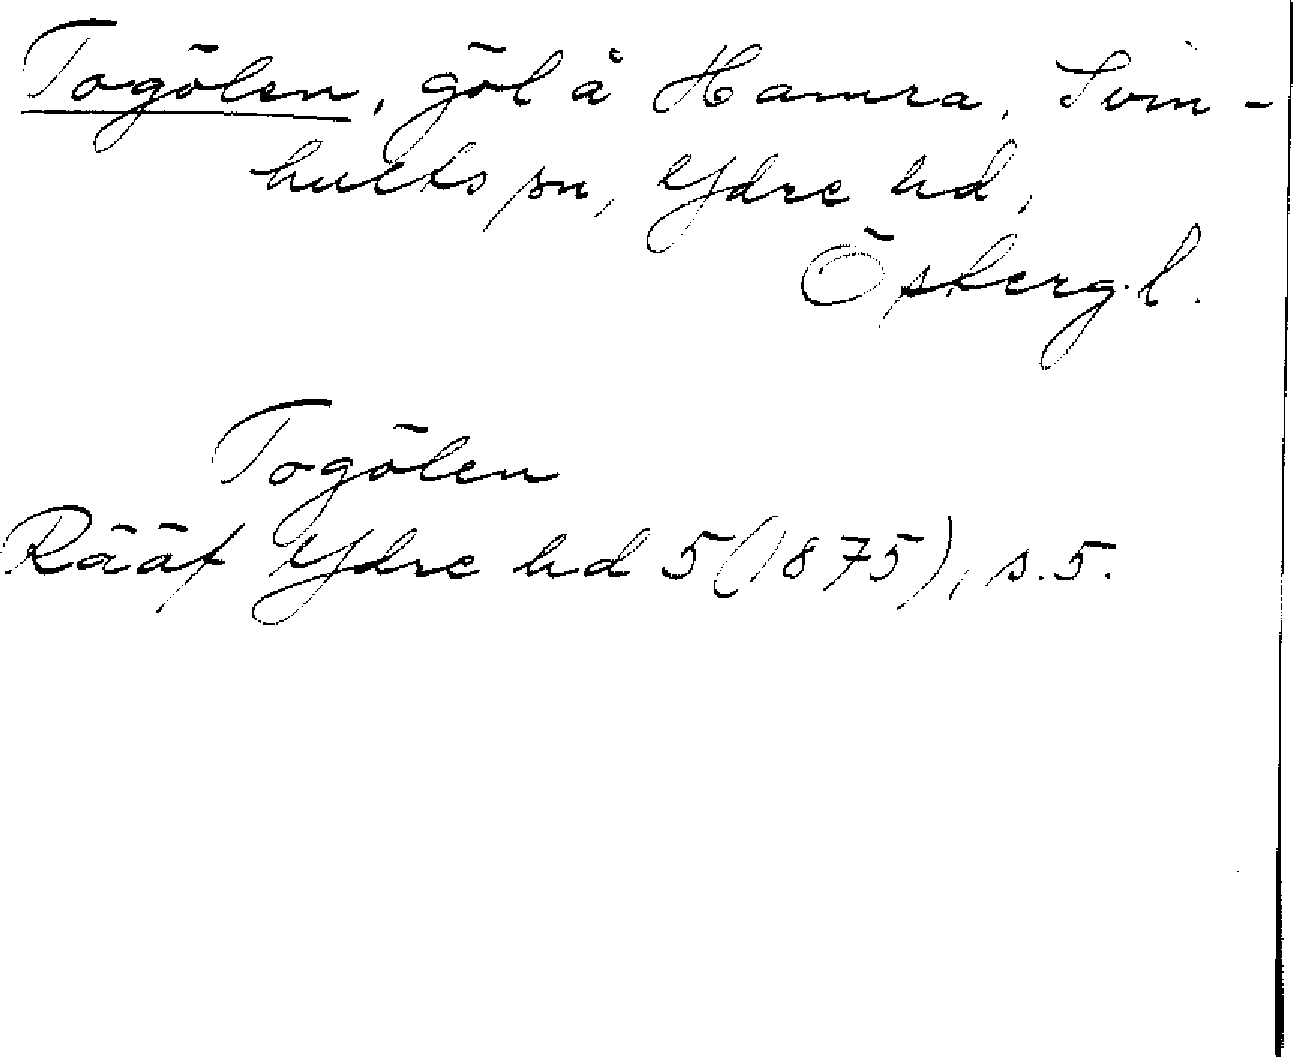 Togölen, göl å Hamra, Svin-
hults sn, Ydre hd,
Östergl.
Togölen
Rääf Ydre hd 5 (1875), s. 5.